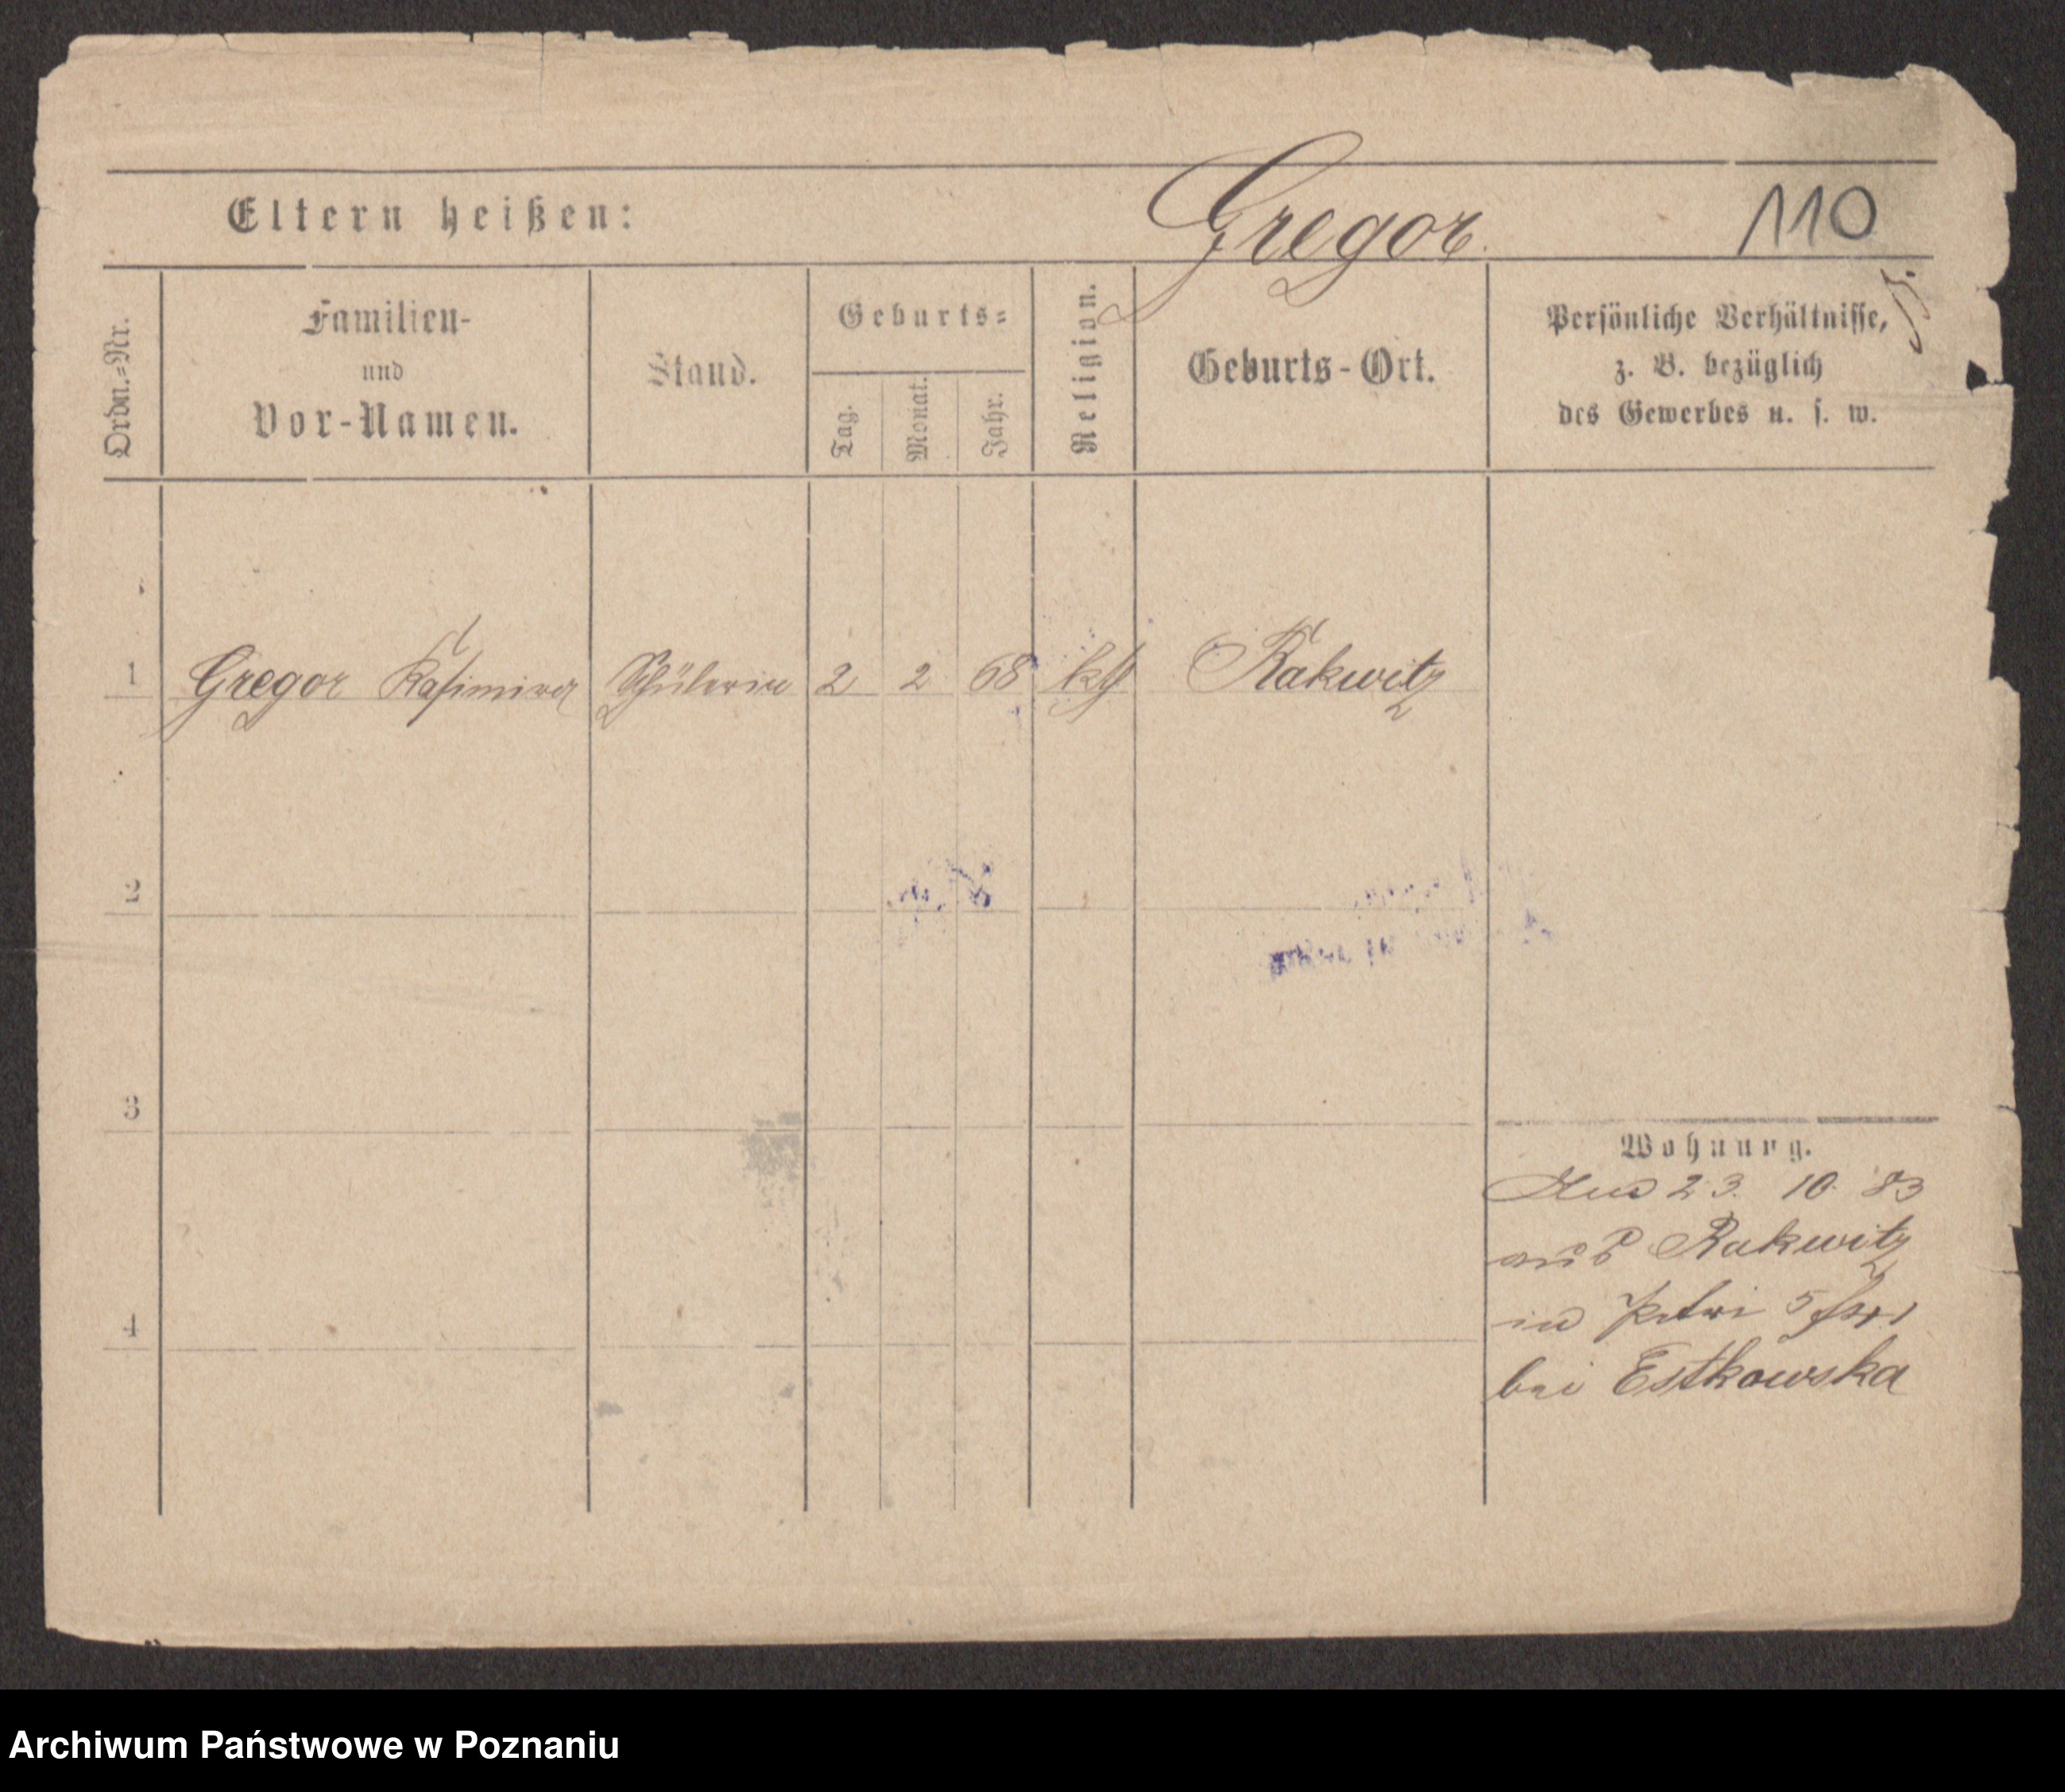 Eltern heißen: Gregor. 110
Ordn.=Nr.
Familien-
und
Vor-Namen.
Stand.
Geburts=
Tag.
Monat.
Jahr.
Religion.
Geburts-Ort.
Persönliche Verhältnisse,
z. B. bezüglich
des Gewerbes u. s. w.
1 Gregor Kasimira Schülerin 2 2 68 kth Rakwitz
2
3
4
Wohnung.
23. 10 83
aus Rakwitz
in Petri 5
bei Estkowska
Archiwum Państwowe w Poznaniu